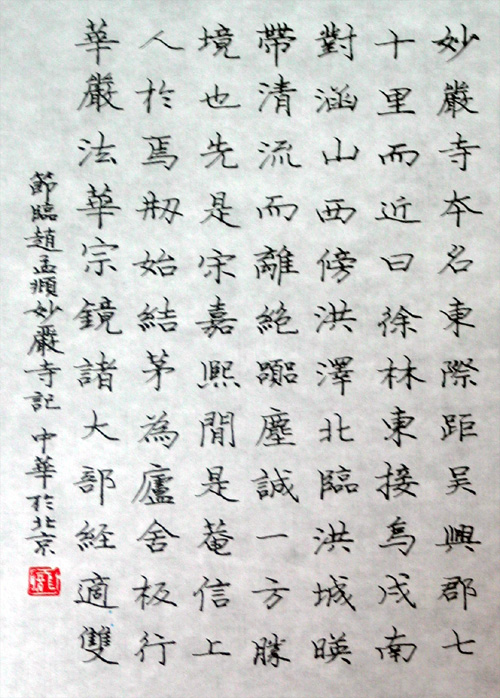 妙嚴寺本名東際距吴興郡七
十里而近曰徐林東接烏戍南
對涵山西傍洪澤北臨洪城暎
帶清流而離絶躢塵誠一方勝
境也先是宋嘉熈間是菴信上
人於焉刱始結茅為廬舍板行
華嚴法華宗鏡諸大部経適雙
節臨趙孟頫妙嚴寺記 中華於北京